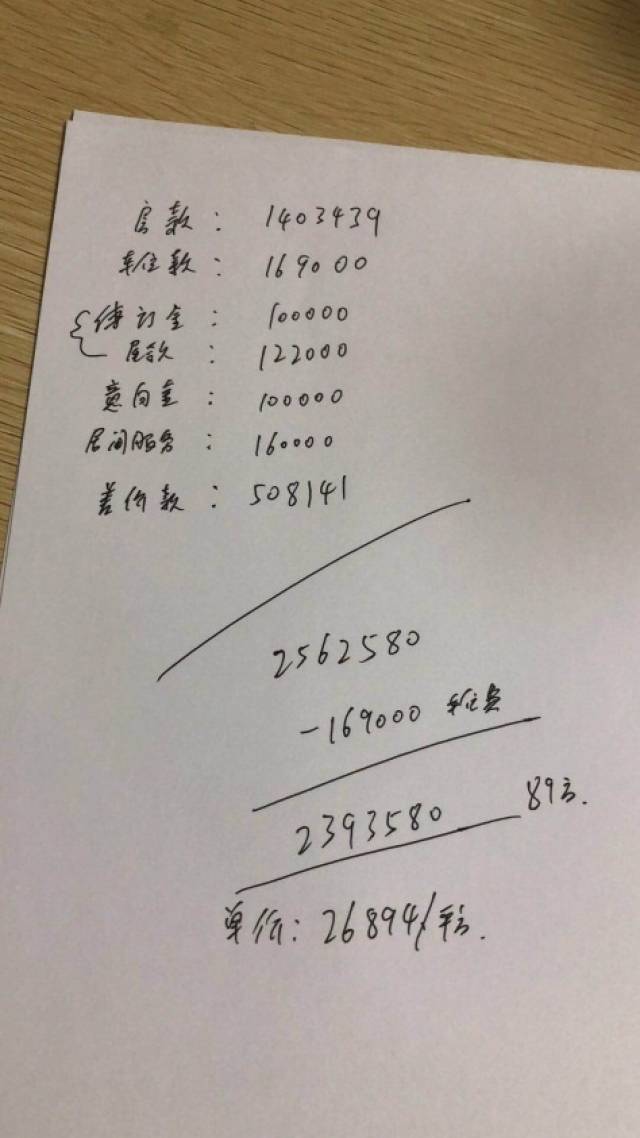 房款：1403439
车位款：169000
订金：100000
尾款：122000
意向金：100000
居间服务：160000
差价款：508141
2562580
-169000 车位费
2393580 89方.
单价：26894/平方.